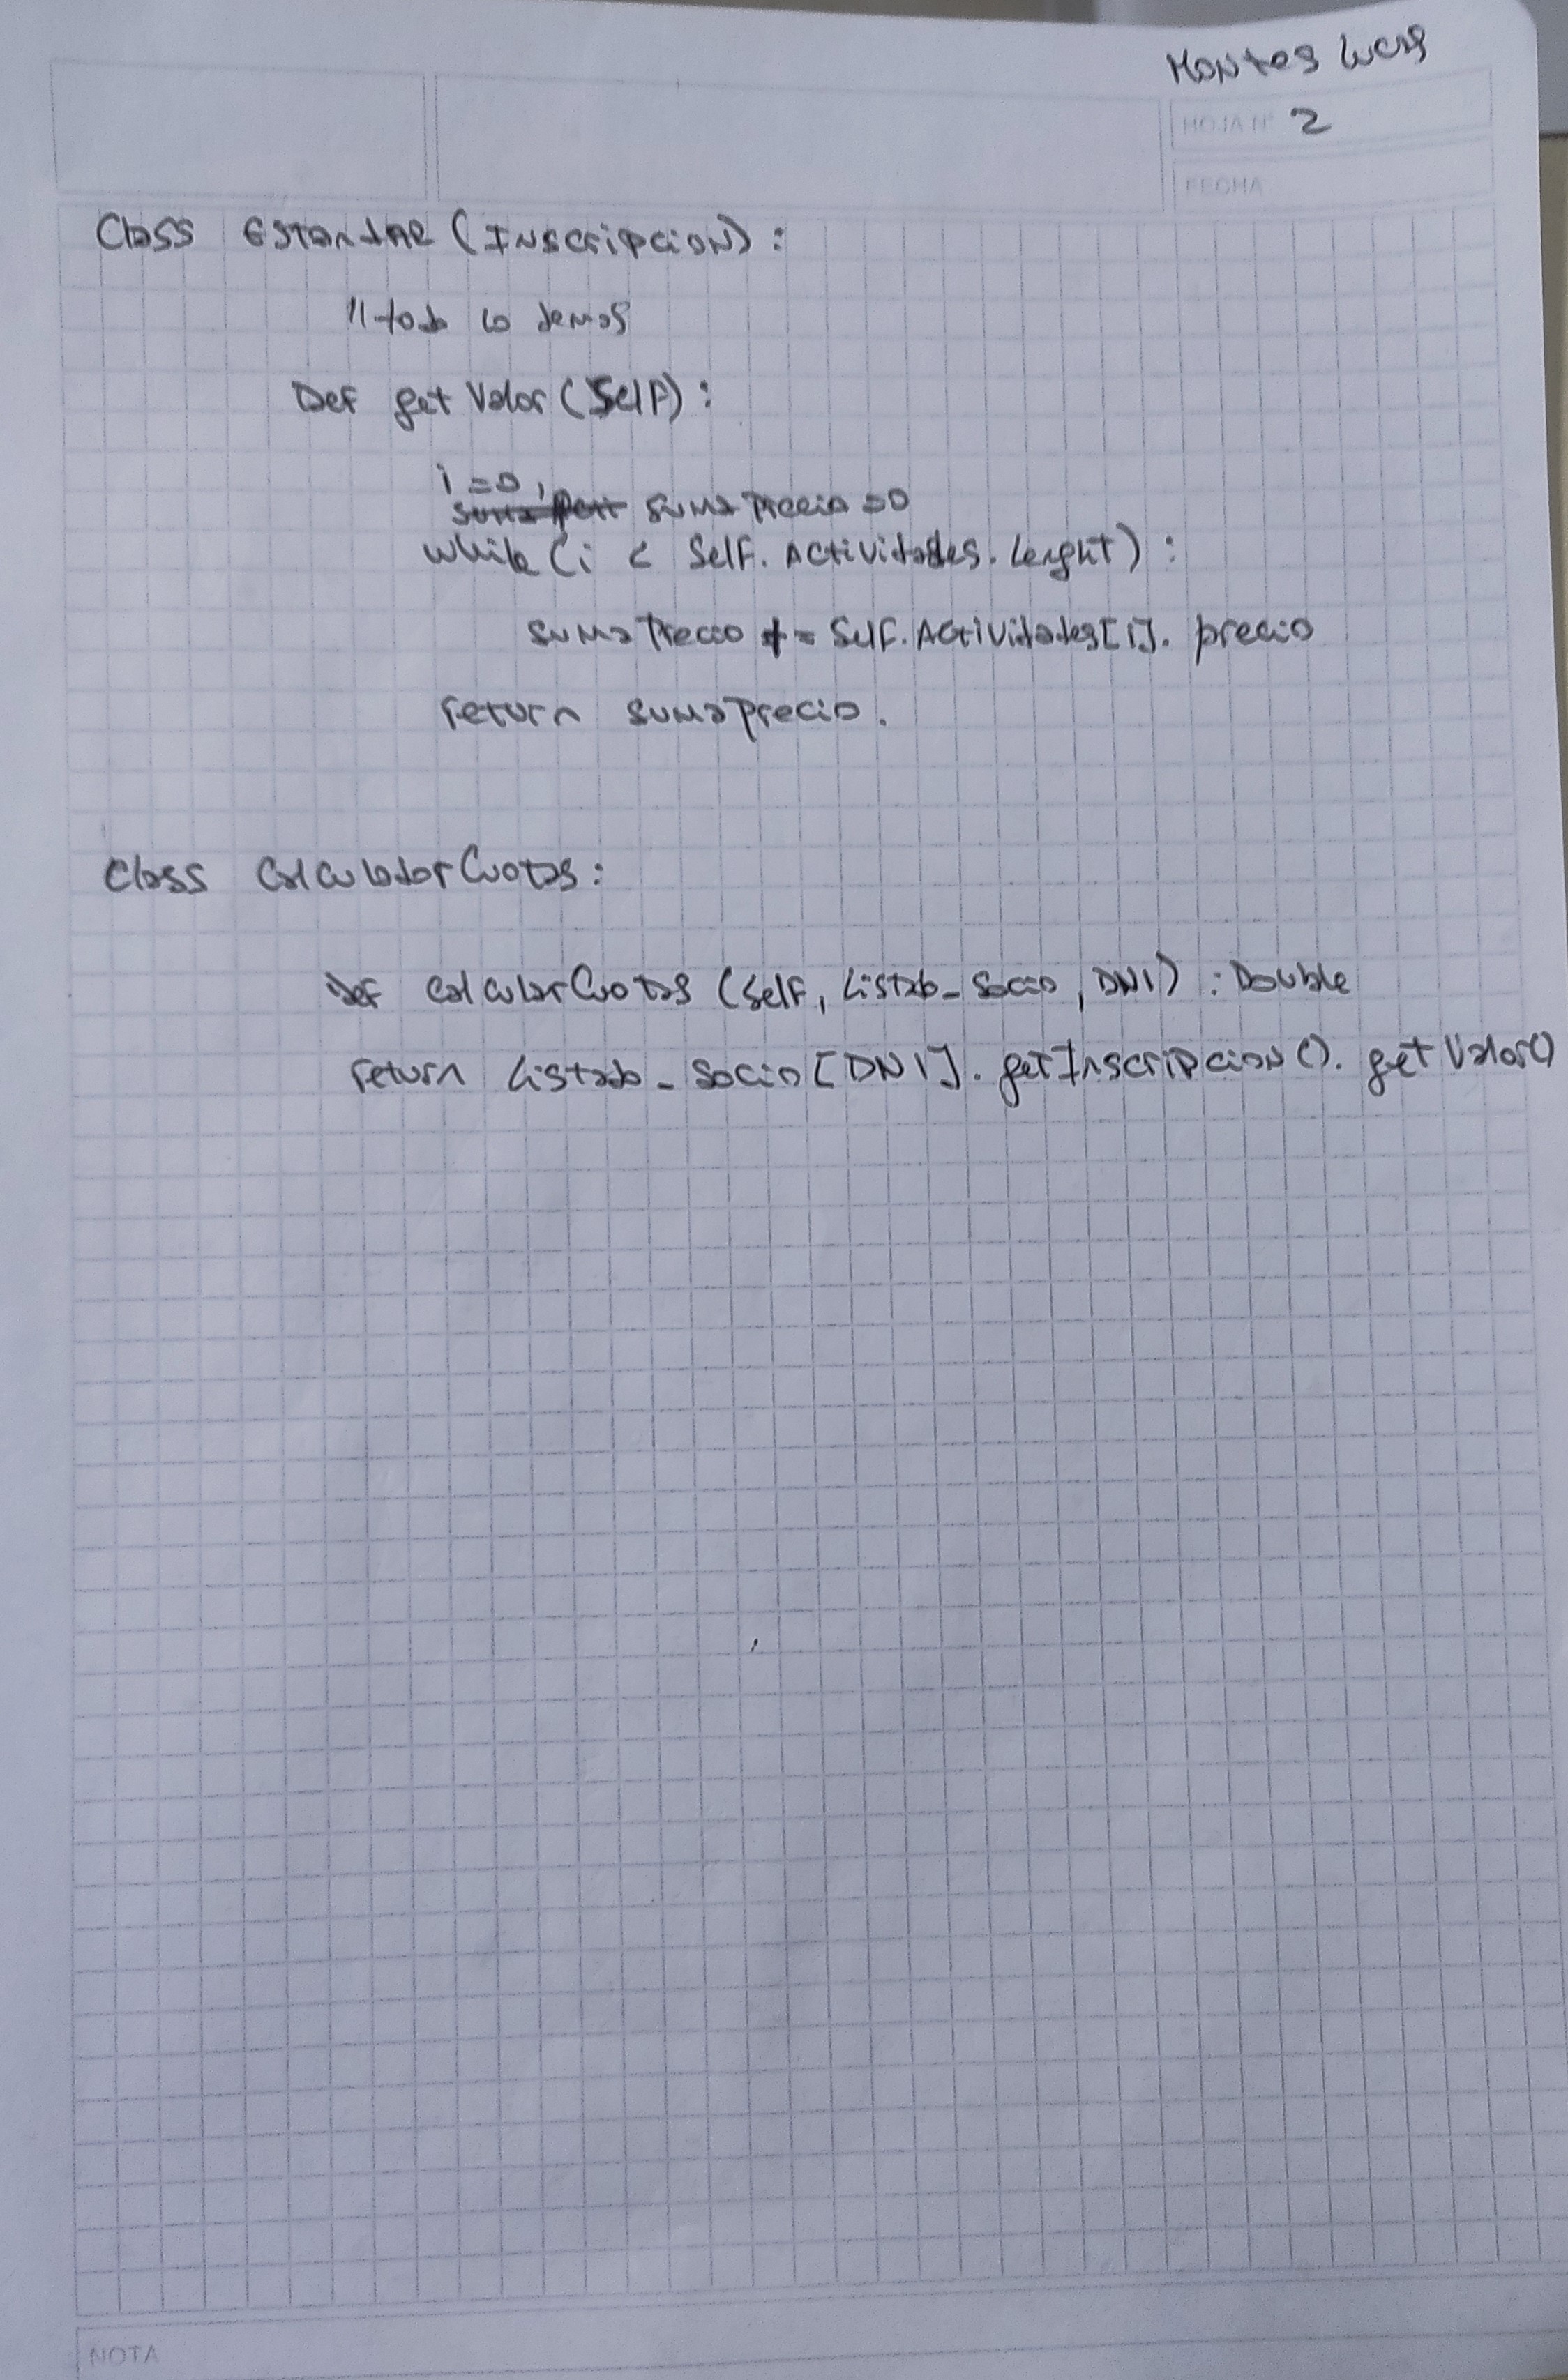 Montes Lucas
HOJA N° 2
FECHA
Class Estandar (Inscripcion):
//todo lo demas
Def getValor(Self):
i=0,
sumaPrecio=0
while (i < Self.Actividades.lenght):
sumaPrecio += Self.Actividades[i].precio
return sumaprecio.
Class CalculadorCuotas:
Def calcularCuotas (Self, Listado_Socio, DNI) : Double
return Listado_Socio[DNI].getInscripcion().getValor()
NOTA